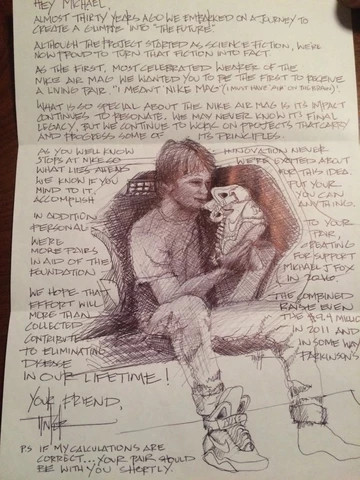 HEY MICHAEL,
ALMOST THIRTY YEARS AGO WE EMBARKED ON A JOURNEY TO
CREATE A GLIMPSE INTO "THE FUTURE"
ALTHOUGH THE PROJECT STARTED AS SCIENCE FICTION, WE'RE
NOW PROUD TO TURN THAT FICTION INTO FACT.
AS THE FIRST, MOST CELEBRATED WEARER OF THE
NIKE AIR MAG WE WANTED YOU TO BE THE FIRST TO RECEIVE
A LIVING PAIR. "I MEANT NIKE MAG" (I MUST HAVE 'AIR' ON THE BRAIN)!
WHAT IS SO SPECIAL ABOUT THE NIKE AIR MAG IS ITS IMPACT
CONTINUES TO RESONATE. WE MAY NEVER KNOW ITS FINAL
LEGACY, BUT WE CONTINUE TO WORK ON PROJECTS THAT CARRY
AND PROGRESS SOME OF ITS PRINCIPLES.
AS YOU WELL KNOW INNOVATION NEVER
STOPS AT NIKE SO WE'RE EXCITED ABOUT
WHAT LIES AHEAD FOR THIS IDEA.
WE KNOW IF YOU PUT YOUR
MIND TO IT, YOU CAN
ACCOMPLISH ANYTHING.
IN ADDITION TO YOUR
PERSONAL PAIR,
WE'RE CREATING
MORE PAIRS FOR SUPPORT
IN AID OF THE MICHAEL J FOX
FOUNDATION IN 2016.
WE HOPE THAT THE COMBINED
EFFORT WILL RAISE EVEN
MORE THAN THE $9.4 MILLION
COLLECTED IN 2011 AND
CONTRIBUTE IN SOME WAY
TO ELIMINATING PARKINSON'S
DISEASE
IN OUR LIFETIME!
YOUR FRIEND,
PS IF MY CALCULATIONS ARE
CORRECT... YOUR PAIR SHOULD
BE WITH YOU SHORTLY.